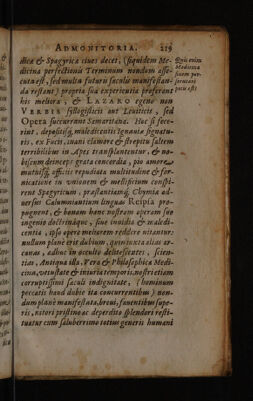 ADMONITORIA. 219
dica & Spagyrica ciues decet, (siquidem Me-
dicina perfectionis Terminum nondum asse-
cuta est, sed multa futuris sæculis manifestan-
da restant) propria sua experientia proferant
his meliora, & LAZARO egeno non
VERBIS syllogisticis aut Leuiticis, sed
Opera succurrent Samaritana. Hoc si fece-
rint, depositisq; maledicentis Ignauiæ signatu-
ris, ex Fucis, inani clamore & strepitu saltem
terribilibus in Apes transplantentur, & no-
biscum deinceps grata concordia, pio amore
mutuisq; officiis repudiata multitudine & for-
nicatione in vnionem & mellificium conspi-
rent Spagyricum, præstantiamq; Chymiæ ad-
uersus Calumniantium linguas Reipsa pro-
pugnent, & bonam hanc nostram operam suo
ingenio doctrinaque, sine inuidia & maledi-
centia, ipso opere meliorem reddere nitantur:
nullum planè erit dubium, quin iuxta alias ar-
canas, adhuc in occulto delitescentes, scien-
tias, Antiqua illa, Vera & Philosophica Medi-
cina, vetustate & iniuria temporis, nostri etiam
corruptissimi sæculi indignitate, (hominum
peccatis haud dubiè ita concurrentibus) non-
dum planè manifestata, breui, fauentibus supe-
ris, nitori pristino ac deperdito splendori resti-
tuatur cum saluberrimo totius generis humani
Quis enim
Medicinæ
finem per-
scrutari
potuit?